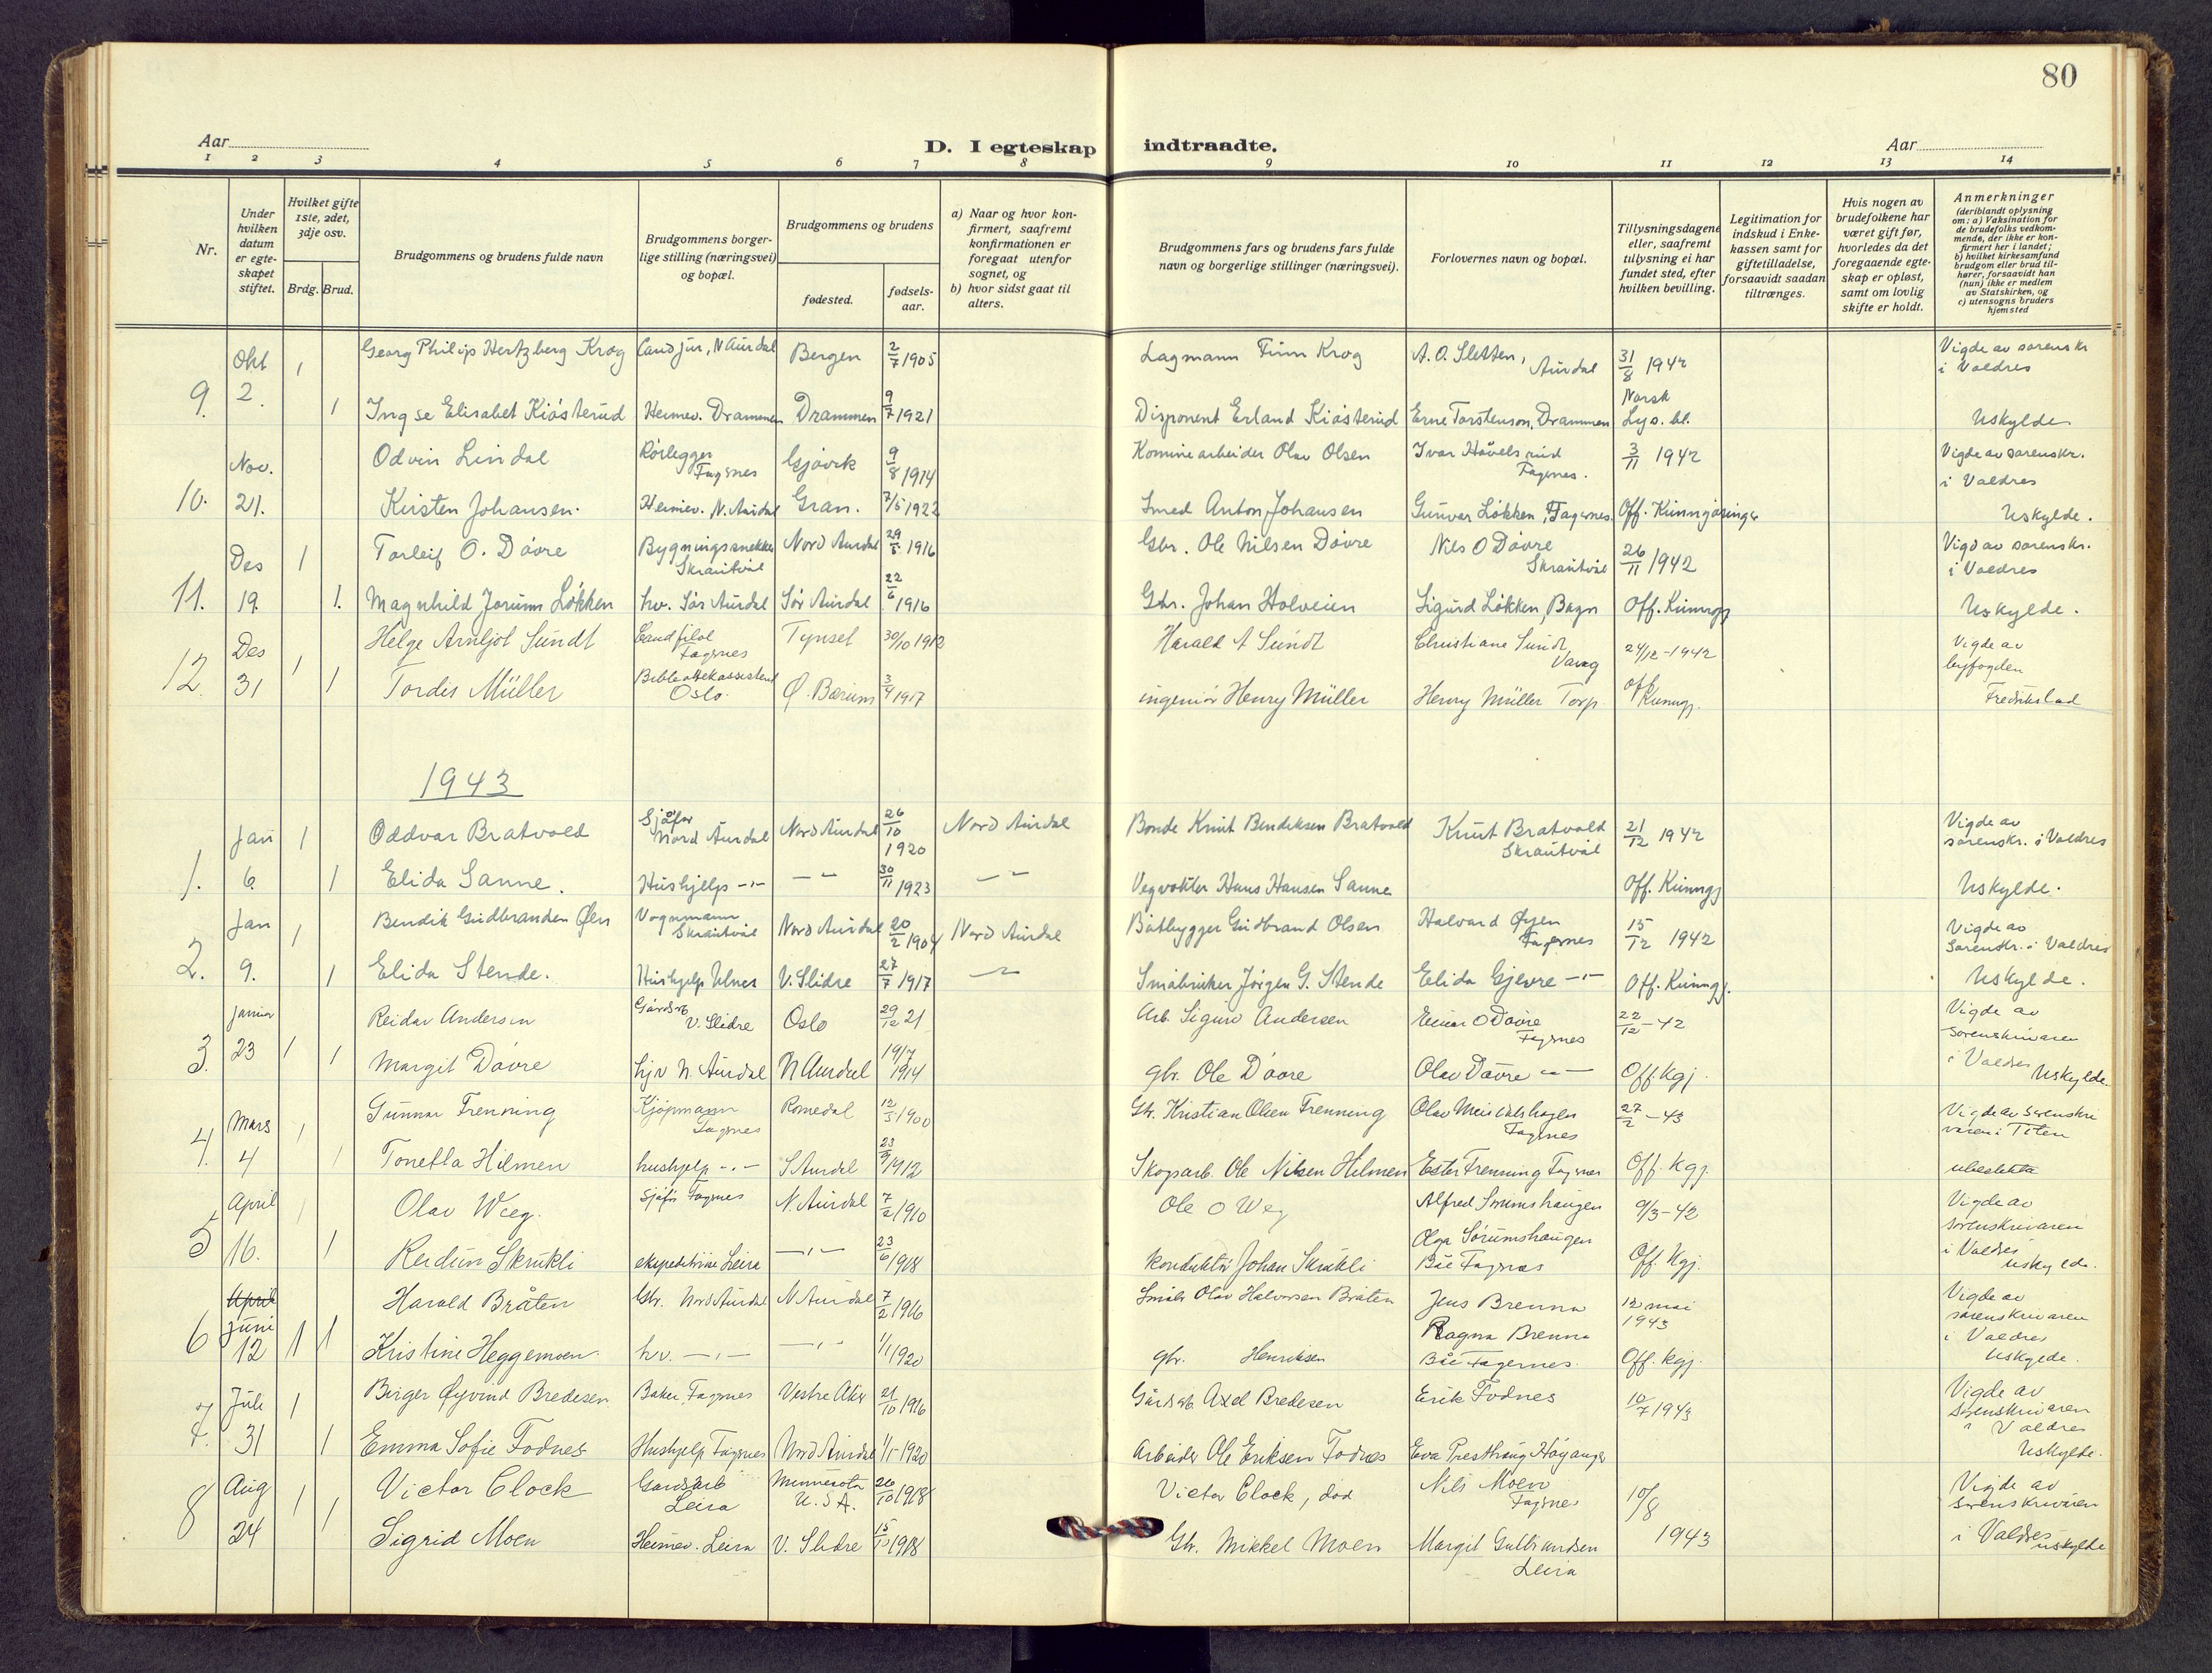 80
Aar
D. I egteskap indtraadte.
Aar
1 2 3 4 5 6 7 8 9 10 11 12 13 14
Nr.
Under hvilken datum er egteskapet stiftet.
Hvilket gifte 1ste, 2det, 3dje osv.
Brdg. Brud.
Brudgommens og brudens fulde navn
Brudgommens borgerlige stilling (næringsvei) og bopæl.
Brudgommens og brudens
fødested.
fødselsaar.
a) Naar og hvor konfirmert, saafremt konfirmationen er foregaat utenfor sognet, og
b) hvor sidst gaat til alters.
Brudgommens fars og brudens fars fulde navn og borgerlige stillinger (næringsvei).
Forlovernes navn og bopæl.
Tillysningsdagene eller, saafremt tillysning ei har fundet sted, efter hvilken bevilling.
Legitimation for indskud i Enkekassen samt for giftetilladelse, forsaavidt saadan tiltrænges.
Hvis nogen av brudefolkene har været gift før, hvorledes da det foregaaende egteskap er opløst, samt om lovlig skifte er holdt.
Anmerkninger
(deriblandt oplysning om: a) Vaksination for de brudefolks vedkommende, der ikke er konfirmert her i landet; b) hvilket kirkesamfund brudgom eller brud tilhører, forsaavidt han (hun) ikke er medlem av Statskirken, og c) utensogns bruders hjemsted
Okt 1 Georg Philip Hertzberg Krog Cand jur, N Aurdal Bergen 2/7 1905 Lagmann Finn Krog A. O. Sletten, Aurdal 31/8 1942 Vigde av sorenskr i Valdres
9. 2. 1 Elisabet Kiøsterud Heimev. Drammen Drammen 9/7 1921 Disponent Erland Kiøsterud Erne Torstenson, Drammen Norsk Lys. bl. Uskylde
Nov. Odvin Lindal Rørlegger Fagernes Gjøvik 9/8 1914 Olav Olsen Ivar Fagernes. 3/11 1942 Vigde av sorenskr. i Valdres
10. 21. Kirsten Johansen. Heimev. N. Aurdal Gran. 7/5 1922 Smed Anton Johansen Gunvor Løkken, Fagernes. Off. Kunngjøringer Uskylde.
Des 1 Torleif O. Døvre Bygningssnekker Skrautvål Nord Aurdal 29/8 1916 Gbr. Ole Nilsen Døvre Nils O Døvre Skrautvål 26/11 1942 Vigd av sorenskr. i Valdres
11. 19. 1. Magnhild Jorunn Løkken hv. Sør Aurdal Sør Aurdal 22/6 1916 Gbr. Johan Holveien Sigurd Løkken, Bagn Off. Kunngj Uskylde.
Des 1 Helge Arnljot Sundt Cand filol Fagernes Tynset 30/10 1912 Harald A Sundt Christiane Sundt 24/12-1942 Vigde av byfogden
12. 31 1 Tordis Müller Bibliotekassistent Oslo Ø. Bærum 3/4 1917 ingeniør Henry Müller Henry Müller Torp Off Kunngj. Fredrikstad
1943
Jan 1 Oddvar Bratvold Sjåfør Nord Aurdal Nord Aurdal 26/10 1920 Nord Aurdal Bonde Knut Bendiksen Bratvold Knut Bratvold Skrautvål 21/12 1942 Vigde av sorenskr. i Valdres
1. 6. 1 Elida Sanne. Hushjelp -"- -"- 30/11 1923 -"- Vegvokter Hans Hansen Sanne Off. Kunngj Uskylde.
Jan 1 Bendik Gudbrandsen Øen Vognmann Skrautvål Nord Aurdal 20/2 1904 Nord Aurdal Båtbygger Gudbrand Olsen Halvard Øyen Fagernes 15/12 1942 Vigde av Sorenskr. i Valdres
2. 9. 1 Elida Stende. Hushjelp Ulnes V. Slidre 27/7 1917 -"- Småbruker Jørgen G. Stende Elida Gjevre -"- Off. Kunngj. Uskylde.
Januar Reidar Andersen Gårdsrb V. Slidre Oslo 29/12 21 Arb. Sigurd Andersen Einar O Døvre Fagernes 22/12-42 Vigde av sorenskrivaren
3. 23 1 1 Margit Døvre hjv N. Aurdal N Aurdal 19/7 1914 gbr. Ole Døvre Olav Døvre -"- Off. Kgj. i Valdres Uskylde.
Mars 1 Gunnar Frenning Kjøpmann Fagernes Romedal 12/3 1900 Gbr. Kristian Olsen Frenning Olav Fagernes 27/2-43 Vigde av sorenskrivaren i Toten
4. 4 1 Tonetta Hilmen hushjelp -"- S Aurdal 23/9 1912 Skogsarb. Ole Nilsen Hilmen Ester Frenning Fagernes Off. Kgj.
April 1 Olav Weg. Sjåfør Fagernes N. Aurdal 7/2 1910 Ole O Weg Alfred Sørumshaugen 9/3-42 Vigde av sorenskrivaren
5 16. 1 Reidun Skrukli ekspeditrise Leira -"- 23/6 1918 konduktør Johan Skrukli Olga Sørumshaugen Båe Fagernes Off. Kgj. i Valdres uskylde.
April Juni Harald Bråten Gbr. Nord Aurdal N Aurdal 7/2 1916 Småbr Olav Halvorsen Bråten Jens Brenna 12 mai 1943 Vigde av sorenskrivaren i Valdres
6 12 1 1 Kristine Heggemoen hv. -"- -"- 1/1 1920 gbr. Henriksen Ragna Brenna Båe Fagernes. Off. kgj. Uskylde.
Juli 1 Birger Øyvind Bredesen Baker Fagernes Vestre Aker 21/10 1916 Gårdsarb. Axel Bredesen Erik Fodnes 10/7 1943 Vigde av sorenskrivaren i Valdres
7. 31 1 Emma Sofie Fodnes Hushjelp Fagernes Nord Aurdal 1/5 1920 Arbeider Ole Eriksen Fodnes Eva Presthaug Høyanger Uskylde.
Aug 1 Victor Clock Gardsarb Leira Minnesota U.S.A. 26/10 1918 Victor Clock, død Nils Moen Fagernes 10/8 Vigde av sorenskrivaren
8 24 1 Sigrid Moen Heimev. Leira V. Slidre 1918 Gbr. Mikkel Moen Margit Gulbrandsen Leira 1943 i Valdres uskylde